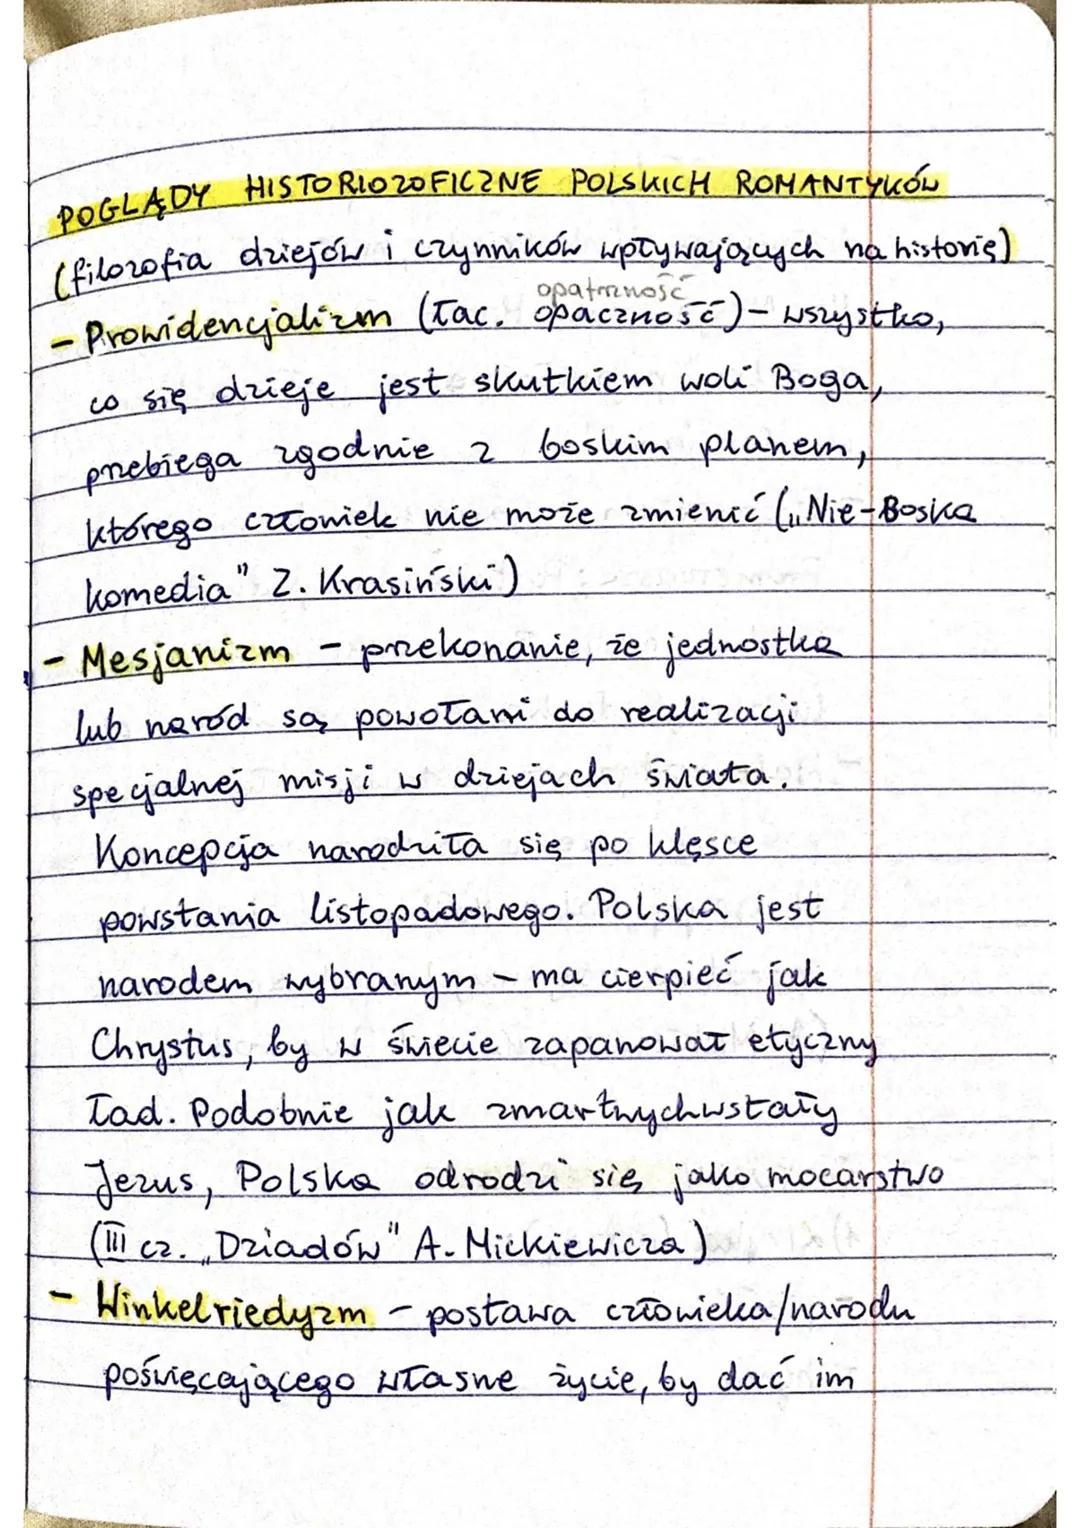 POGLĄDY HISTORIOZOFICZNE POLSKICH ROMANTYKÓW
(filozofia dziejów i czynników wpływających na historię)
opatrzność
- Prowidencjalizm (łac. opaczność) - wszystko,
co się dzieje jest skutkiem woli Boga,
przebiega zgodnie z boskim planem,
którego człowiek nie może zmienić („Nie-Boska
komedia" Z. Krasiński)
- Mesjanizm - przekonanie, że jednostka
lub naród są powołani do realizacji
specjalnej misji w dziejach świata.
Koncepcja narodziła się po klęsce
powstania listopadowego. Polska jest
narodem wybranym - ma cierpieć jak
Chrystus, by w świecie zapanował etyczny
ład. Podobnie jak zmartwychwstały
Jezus, Polska odrodzi się jako mocarstwo
(III cz. „Dziadów" A. Mickiewicza)
- Winkelriedyzm - postawa człowieka/narodu
poświęcającego własne życie, by dać im